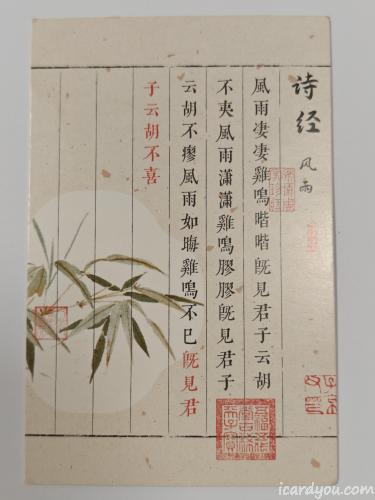 诗经
风雨
風雨凄凄雞鳴喈喈旣見君子云胡
不夷風雨瀟瀟雞鳴膠膠旣見君子
云胡不瘳風雨如晦雞鳴不已旣見君
子云胡不喜
icardyou.com